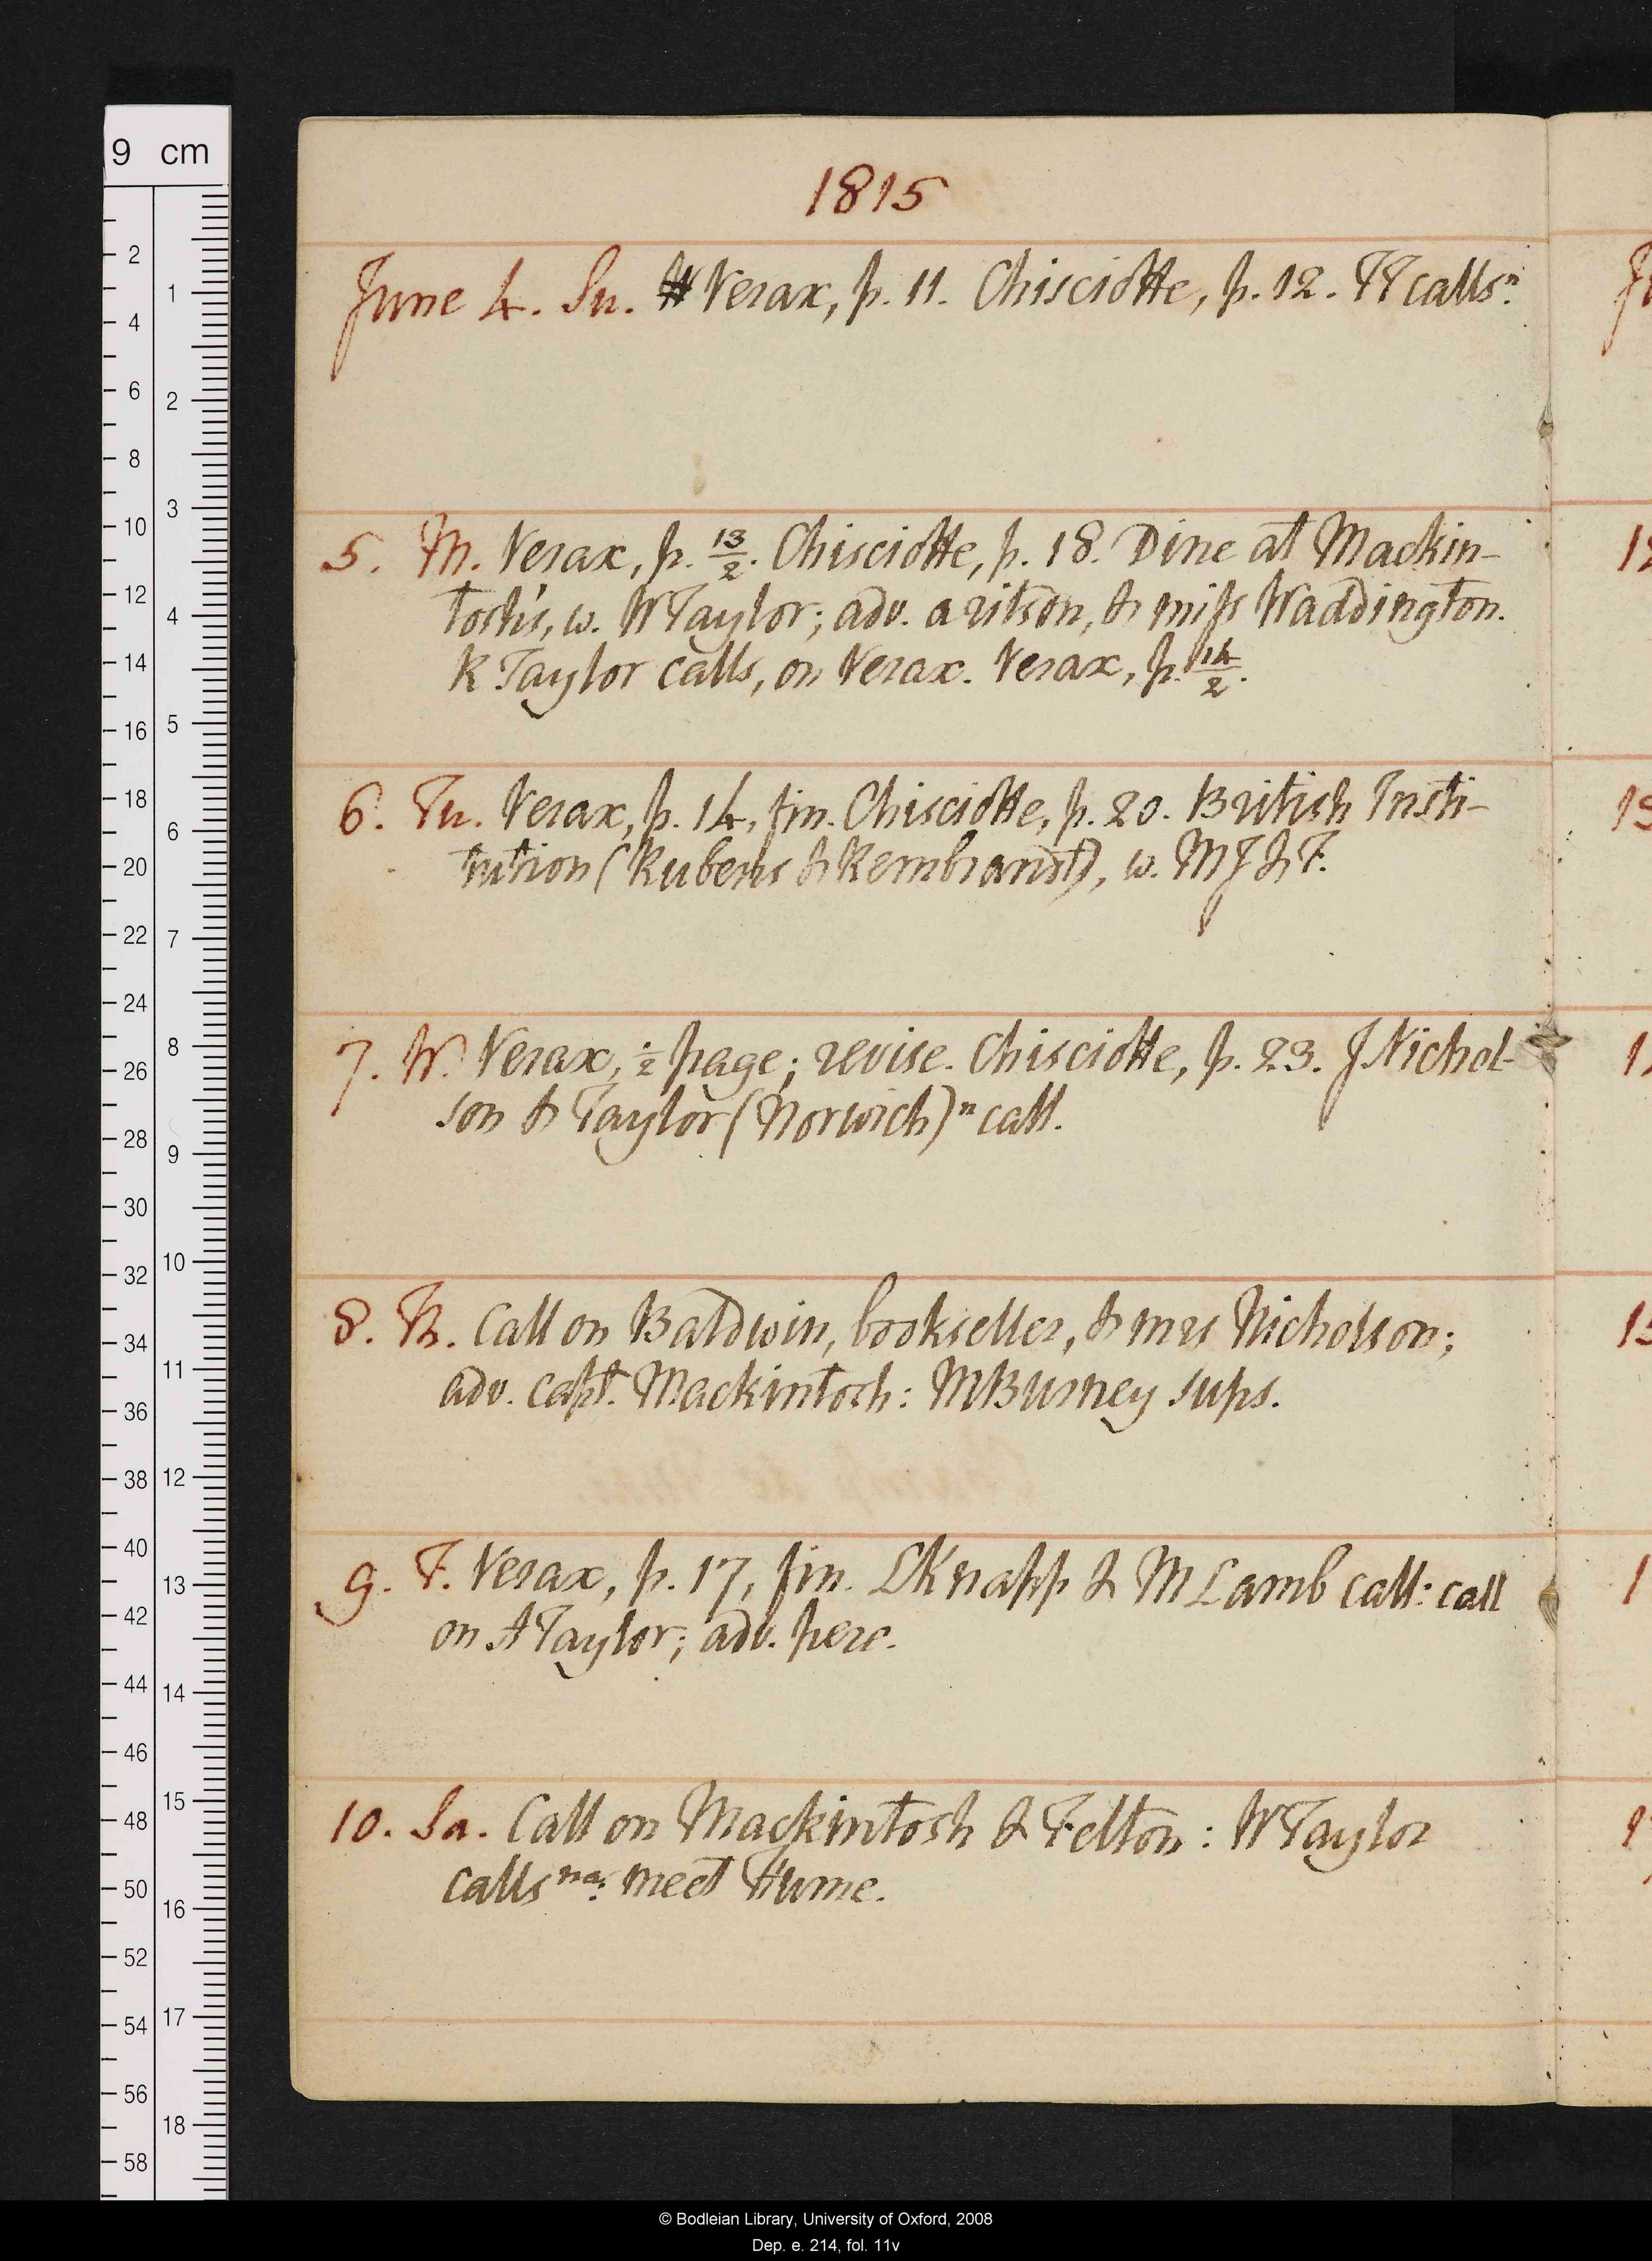 1815
June 4. Su. Verax, p. 11. Chisciotte, p. 12. TT calls n.
5. M. Verax, p. 13/2. Chisciotte, p. 18. Dine at Mackin-
tosh's, w. W Taylor; adv. aritson, & miss Waddington.
R Taylor calls, on Verax. Verax, p. 14/2.
6. Tu. Verax, p. 14, fin. Chisciotte, p. 20. British Insti-
tution (Rubens & Rembrandt), w. MJ & F.
7. W. Verax, 1/2 page; revise. Chisciotte, p. 23. J Nichol-
son & Taylor (Norwich) n call.
8. Th. Call on Baldwin, bookseller, & mrs Nicholson;
adv. capt. Mackintosh: MBurney sups.
9. F. Verax, p. 17, fin. LKnapp & M Lamb call: call
on A Taylor; adv. pere.
10. Sa. Call on Mackintosh & Felton: W Taylor
calls na: meet Hume.
9 cm
2
4
6
8
10
12
14
16
18
20
22
24
26
28
30
32
34
36
38
40
42
44
46
48
50
52
54
56
58
1
2
3
4
5
6
7
8
9
10
11
12
13
14
15
16
17
18
© Bodleian Library, University of Oxford, 2008
Dep. e. 214, fol. 11v